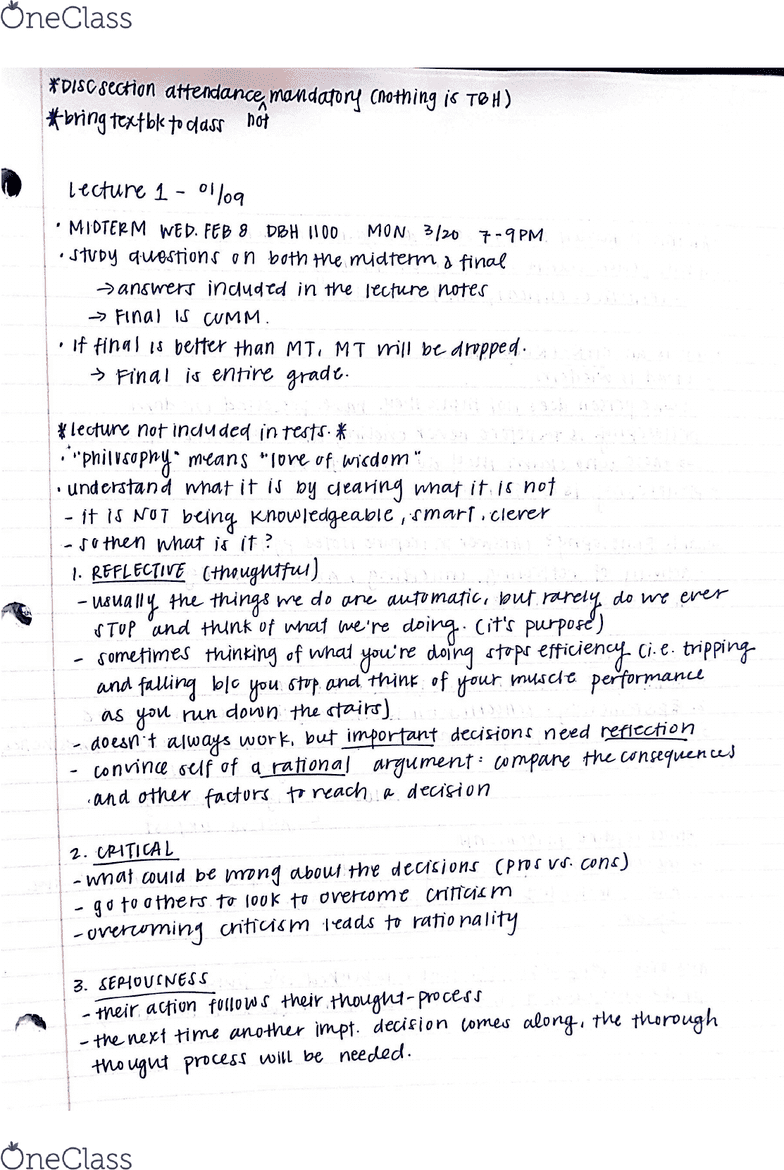 OneClass
*DISC section attendance not mandatory (nothing is TBH)
*bring textbk to class
Lecture 1 - 01/09
· MIDTERM WED. FEB 8 DBH 1100 MON 3/20 7-9PM
· study questions on both the midterm & final
→ answers included in the lecture notes
→ Final is CUMM.
· If final is better than MT, MT will be dropped.
→ Final is entire grade.
*lecture not included in tests.*
· "philosophy" means "love of wisdom"
· understand what it is by clearing what it is not
- it is NOT being knowledgeable, smart, clever
- so then what is it?
1. REFLECTIVE (thoughtful)
- usually the things we do are automatic, but rarely do we ever
STOP and think of what we're doing. (it's purpose)
- sometimes thinking of what you're doing stops efficiency (i.e. tripping
and falling b/c you stop and think of your muscle performance
as you run down the stairs)
- doesn't always work, but important decisions need reflection
- convince self of a rational argument: compare the consequences
and other factors to reach a decision
2. CRITICAL
- what could be wrong about the decisions (pros vs. cons)
- go to others to look to overcome criticism
- overcoming criticism leads to rationality
3. SERIOUSNESS
- their action follows their thought-process
- the next time another impt. decision comes along, the thorough
thought process will be needed.
OneClass